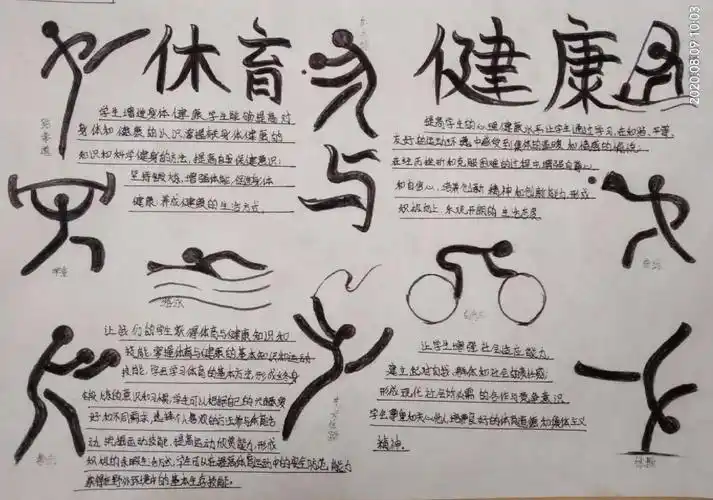 体育
与
健康
2020.08.09 10:03
跆拳道
学生增进身体健康,学生能够提高对
身体和健康的认识,掌握有身体健康的
知识和科学健身的方法,提高自我保健意识;
坚持锻炼,增强体能,促进身体
健康,养成健康的生活方式.
提高学生的心理健康水平,让学生通过学习,在和谐、平等、
友好的运动环境中感受到集体的温暖和情感的愉悦;
在经历挫折和克服困难的过程中,增强自尊心
和自信心,培养创新精神和创新能力,形成
积极向上,乐观开朗的生活态度
举重
游泳
让我们的学生获得体育与健康知识和
技能,掌握体育与健康的基本知识和运动
技能,学会学习体育的基本方法,形成终身
锻炼的意识和习惯;学生可以根据自己的兴趣爱
好和不同需求,选择个人喜欢的方法参与体育活
动,挖掘运动技能,提高运动欣赏能力,形成
积极的余暇生活方式;学生可以在提高体育运动中的安全防范能力
获得在野外环境中的基本生存技能.
让学生增强社会适应能力,
建立起对自我、群体和社会的责任感;
形成现代社会所必需的合作与竞争意识,
学会尊重和关心他人,培养良好的体育道德和集体主义
精神.
拳击
体操